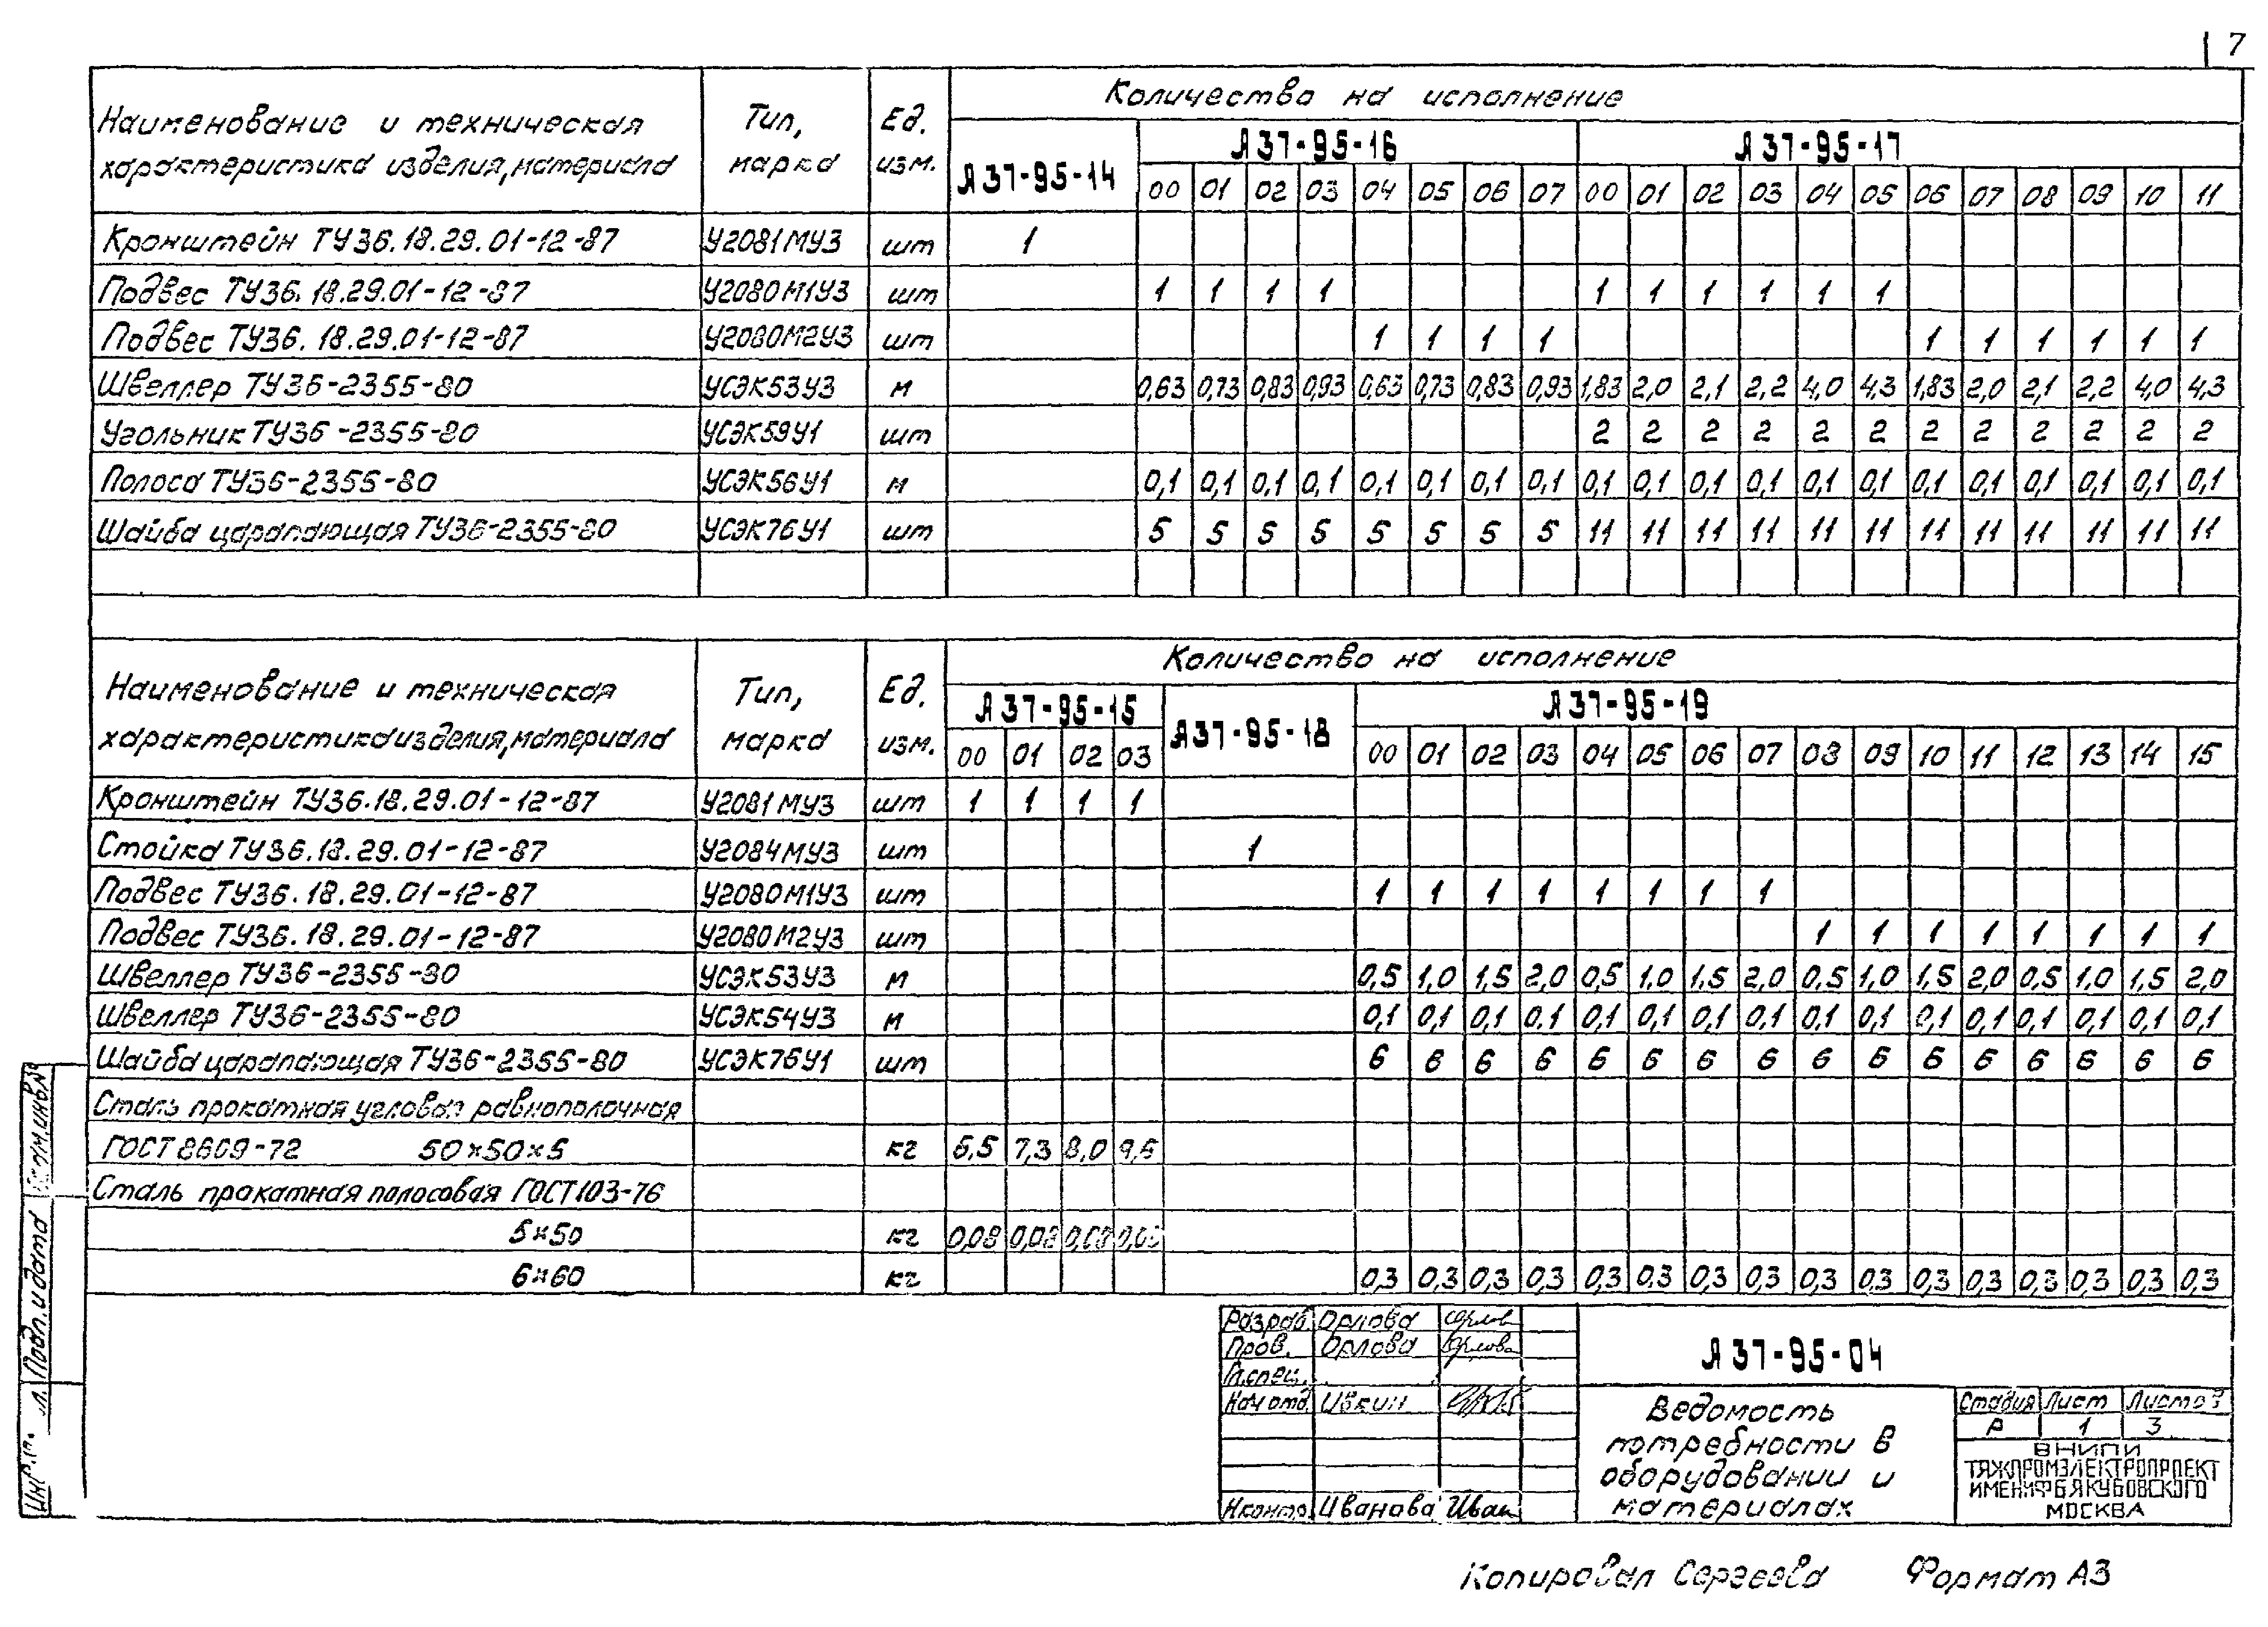 7
Наименование и техническая характеристика изделия, материала Тип, марка Ед. изм. Количество на исполнение
А37-95-14 А37-95-16 А37-95-17
00 01 02 03 04 05 06 07 00 01 02 03 04 05 06 07 08 09 10 11
Кронштейн ТУ36.18.29.01-12-87 У2081МУ3 шт 1
Подвес ТУ36.18.29.01-12-87 У2080М1У3 шт 1 1 1 1 1 1 1 1 1 1
Подвес ТУ36.18.29.01-12-87 У2080М2У3 шт 1 1 1 1 1 1 1 1 1 1
Швеллер ТУ36-2355-80 УСЭК53У3 м 0,63 0,73 0,83 0,93 0,63 0,73 0,83 0,93 1,83 2,0 2,1 2,2 4,0 4,3 1,83 2,0 2,1 2,2 4,0 4,3
Угольник ТУ36-2355-80 УСЭК59У1 шт 2 2 2 2 2 2 2 2 2 2 2 2
Полоса ТУ36-2355-80 УСЭК56У1 м 0,1 0,1 0,1 0,1 0,1 0,1 0,1 0,1 0,1 0,1 0,1 0,1 0,1 0,1 0,1 0,1 0,1 0,1 0,1 0,1
Шайба царапающая ТУ36-2355-80 УСЭК76У1 шт 5 5 5 5 5 5 5 5 11 11 11 11 11 11 11 11 11 11 11 11
Наименование и техническая характеристика изделия, материала Тип, марка Ед. изм. Количество на исполнение
А37-95-15 А37-95-18 А37-95-19
00 01 02 03 00 01 02 03 04 05 06 07 08 09 10 11 12 13 14 15
Кронштейн ТУ36.18.29.01-12-87 У2081МУ3 шт 1 1 1 1
Стойка ТУ36.18.29.01-12-87 У2084МУ3 шт 1
Подвес ТУ36.18.29.01-12-87 У2080М1У3 шт 1 1 1 1 1 1 1 1
Подвес ТУ36.18.29.01-12-87 У2080М2У3 шт 1 1 1 1 1 1 1 1
Швеллер ТУ36-2355-80 УСЭК53У3 м 0,5 1,0 1,5 2,0 0,5 1,0 1,5 2,0 0,5 1,0 1,5 2,0 0,5 1,0 1,5 2,0
Швеллер ТУ36-2355-80 УСЭК54У3 м 0,1 0,1 0,1 0,1 0,1 0,1 0,1 0,1 0,1 0,1 0,1 0,1 0,1 0,1 0,1 0,1
Шайба царапающая ТУ36-2355-80 УСЭК76У1 шт 6 6 6 6 6 6 6 6 6 6 6 6 6 6 6 6
Сталь прокатная угловая равнополочная
ГОСТ 8509-72 50×50×5 кг 7,3 8,0
Сталь прокатная полосовая ГОСТ 103-76
5×50 кг 0,08 0,08 0,08 0,08
6×60 кг 0,3 0,3 0,3 0,3 0,3 0,3 0,3 0,3 0,3 0,3 0,3 0,3 0,3 0,3 0,3 0,3
Разраб. Орлова
Пров. Орлова
Гл.спец.
Нач отд. Ивкин
Н.контр. Иванова Иван
А37-95-04
Ведомость
потребности в
оборудовании и
материалах
Стадия Лист Листов
Р 1 3
ВНИПИ
ТЯЖПРОМЭЛЕКТРОПРОЕКТ
ИМЕНИ Ф.Б.ЯКУБОВСКОГО
МОСКВА
Подп. и дата
Копировал Сергеева Формат А3